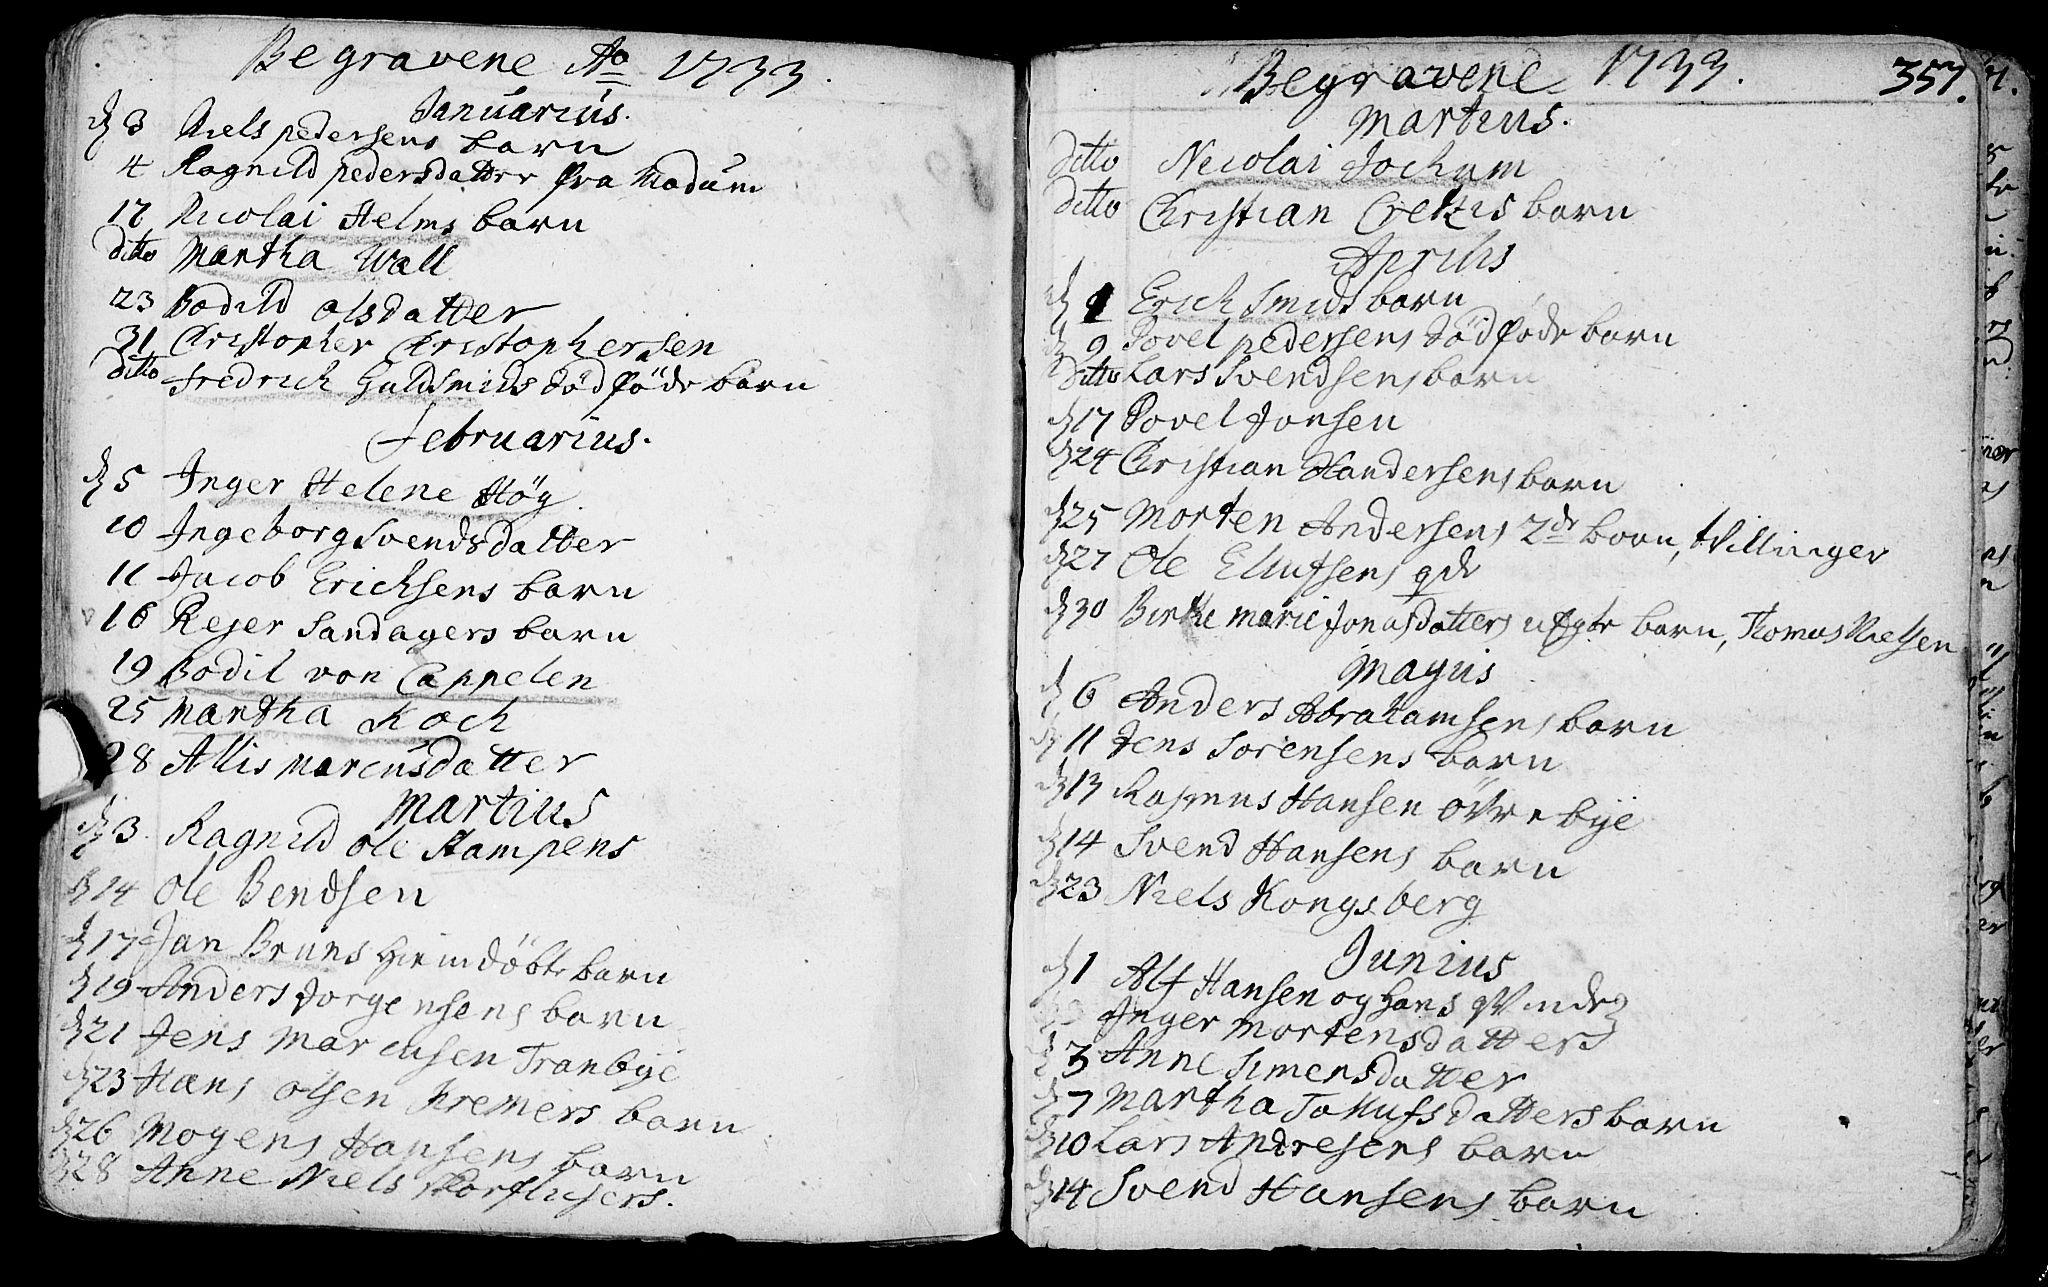 Begravene Ao 1733.
Januarius.
d 3 Niels pedersens barn
4 Ragnild pedersdatter fra Modum
17 Nicolai Helms barn
ditto Martha Wall
23 Bodild olsdatter
31 Christopher Christophersen
ditto Fredrich Guldsmids dödföde barn
Februarius.
d 5 Inger Helene Hög
10 Ingeborg Svendsdatter
11 Jacob Erichsens barn
16 Rejer Sandagers barn
19 Bodil von Cappelen
25 Martha Koch
28 Allis Marcusdatter
Martius
d 3 Ragnild ole Stampens
d 14 Ole Bendsen
d 17 Jan Bruns hiemdöbte barn
d 19 Anders Jorgensens barn
d 21 Jens Marcusen Tranbye
d 23 Hans olsen kremers barn
d 26 Mogens Hansens barn
d 28 Anne Niels
Begravene 1733. 357.
Martius.
ditto Nicolai Jochum
ditto Christian barn
Aprilis
d 1 Erich Smids barn
d 9 Povel pedersens dödföde barn
ditto Lars Svendsens barn
d 17 Povel Jonsen
d 24 Christian Handersens barn
d 25 Morten Andersens 2de born, tvillinger
d 27 Ole Ellufsens qde
d 30 Birthe marie Jonasdatters uægte barn, Thomas Nielsen
Majus
d 6 Anders Abrahamsens barn
d 11 Jens Sorensens barn
d 13 Rasmus Hansen övre bye
d 14 Svend Hansens barn
d 23 Niels Kongsberg
Junius
d 1 Alf Hansen og hans qvinde
Inger Mortensdatters
d 3 Anne Simensdatter
d 7 Martha Tollufsdatters barn
d 10 Lars Andresens barn
d 14 Svend Hansens barn